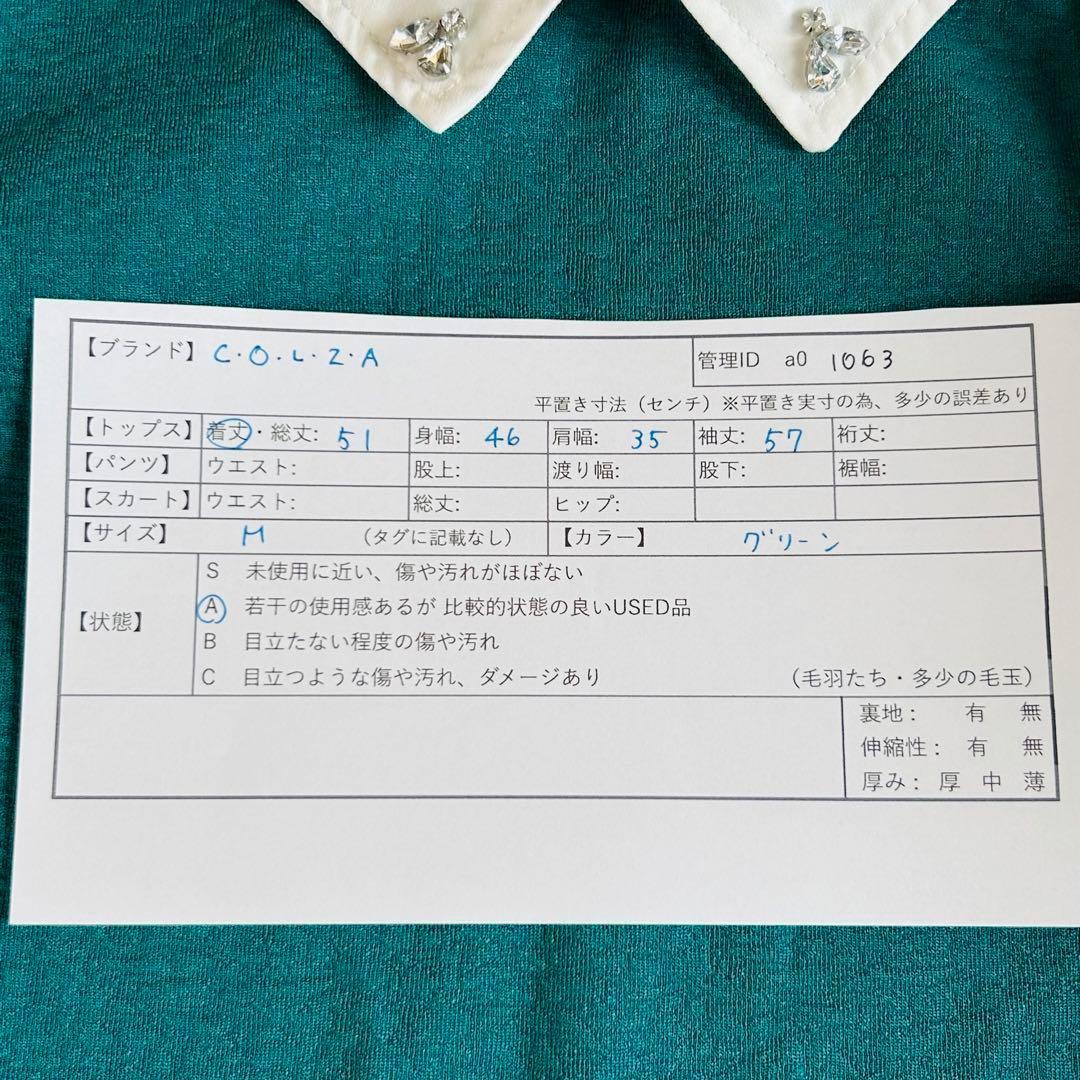 【ブランド】 C.O.L.Z.A
管理ID a0 1063
平置き寸法（センチ）※平置き実寸の為、多少の誤差あり
【トップス】 着丈・総丈: 51 身幅: 46 肩幅: 35 袖丈: 57 裄丈:
【パンツ】 ウエスト: 股上: 渡り幅: 股下: 裾幅:
【スカート】 ウエスト: 総丈: ヒップ:
【サイズ】 M （タグに記載なし） 【カラー】 グリーン
【状態】
S 未使用に近い、傷や汚れがほぼない
A 若干の使用感あるが 比較的状態の良いUSED品
B 目立たない程度の傷や汚れ
C 目立つような傷や汚れ、ダメージあり （毛羽たち・多少の毛玉）
裏地： 有 無
伸縮性： 有 無
厚み： 厚 中 薄